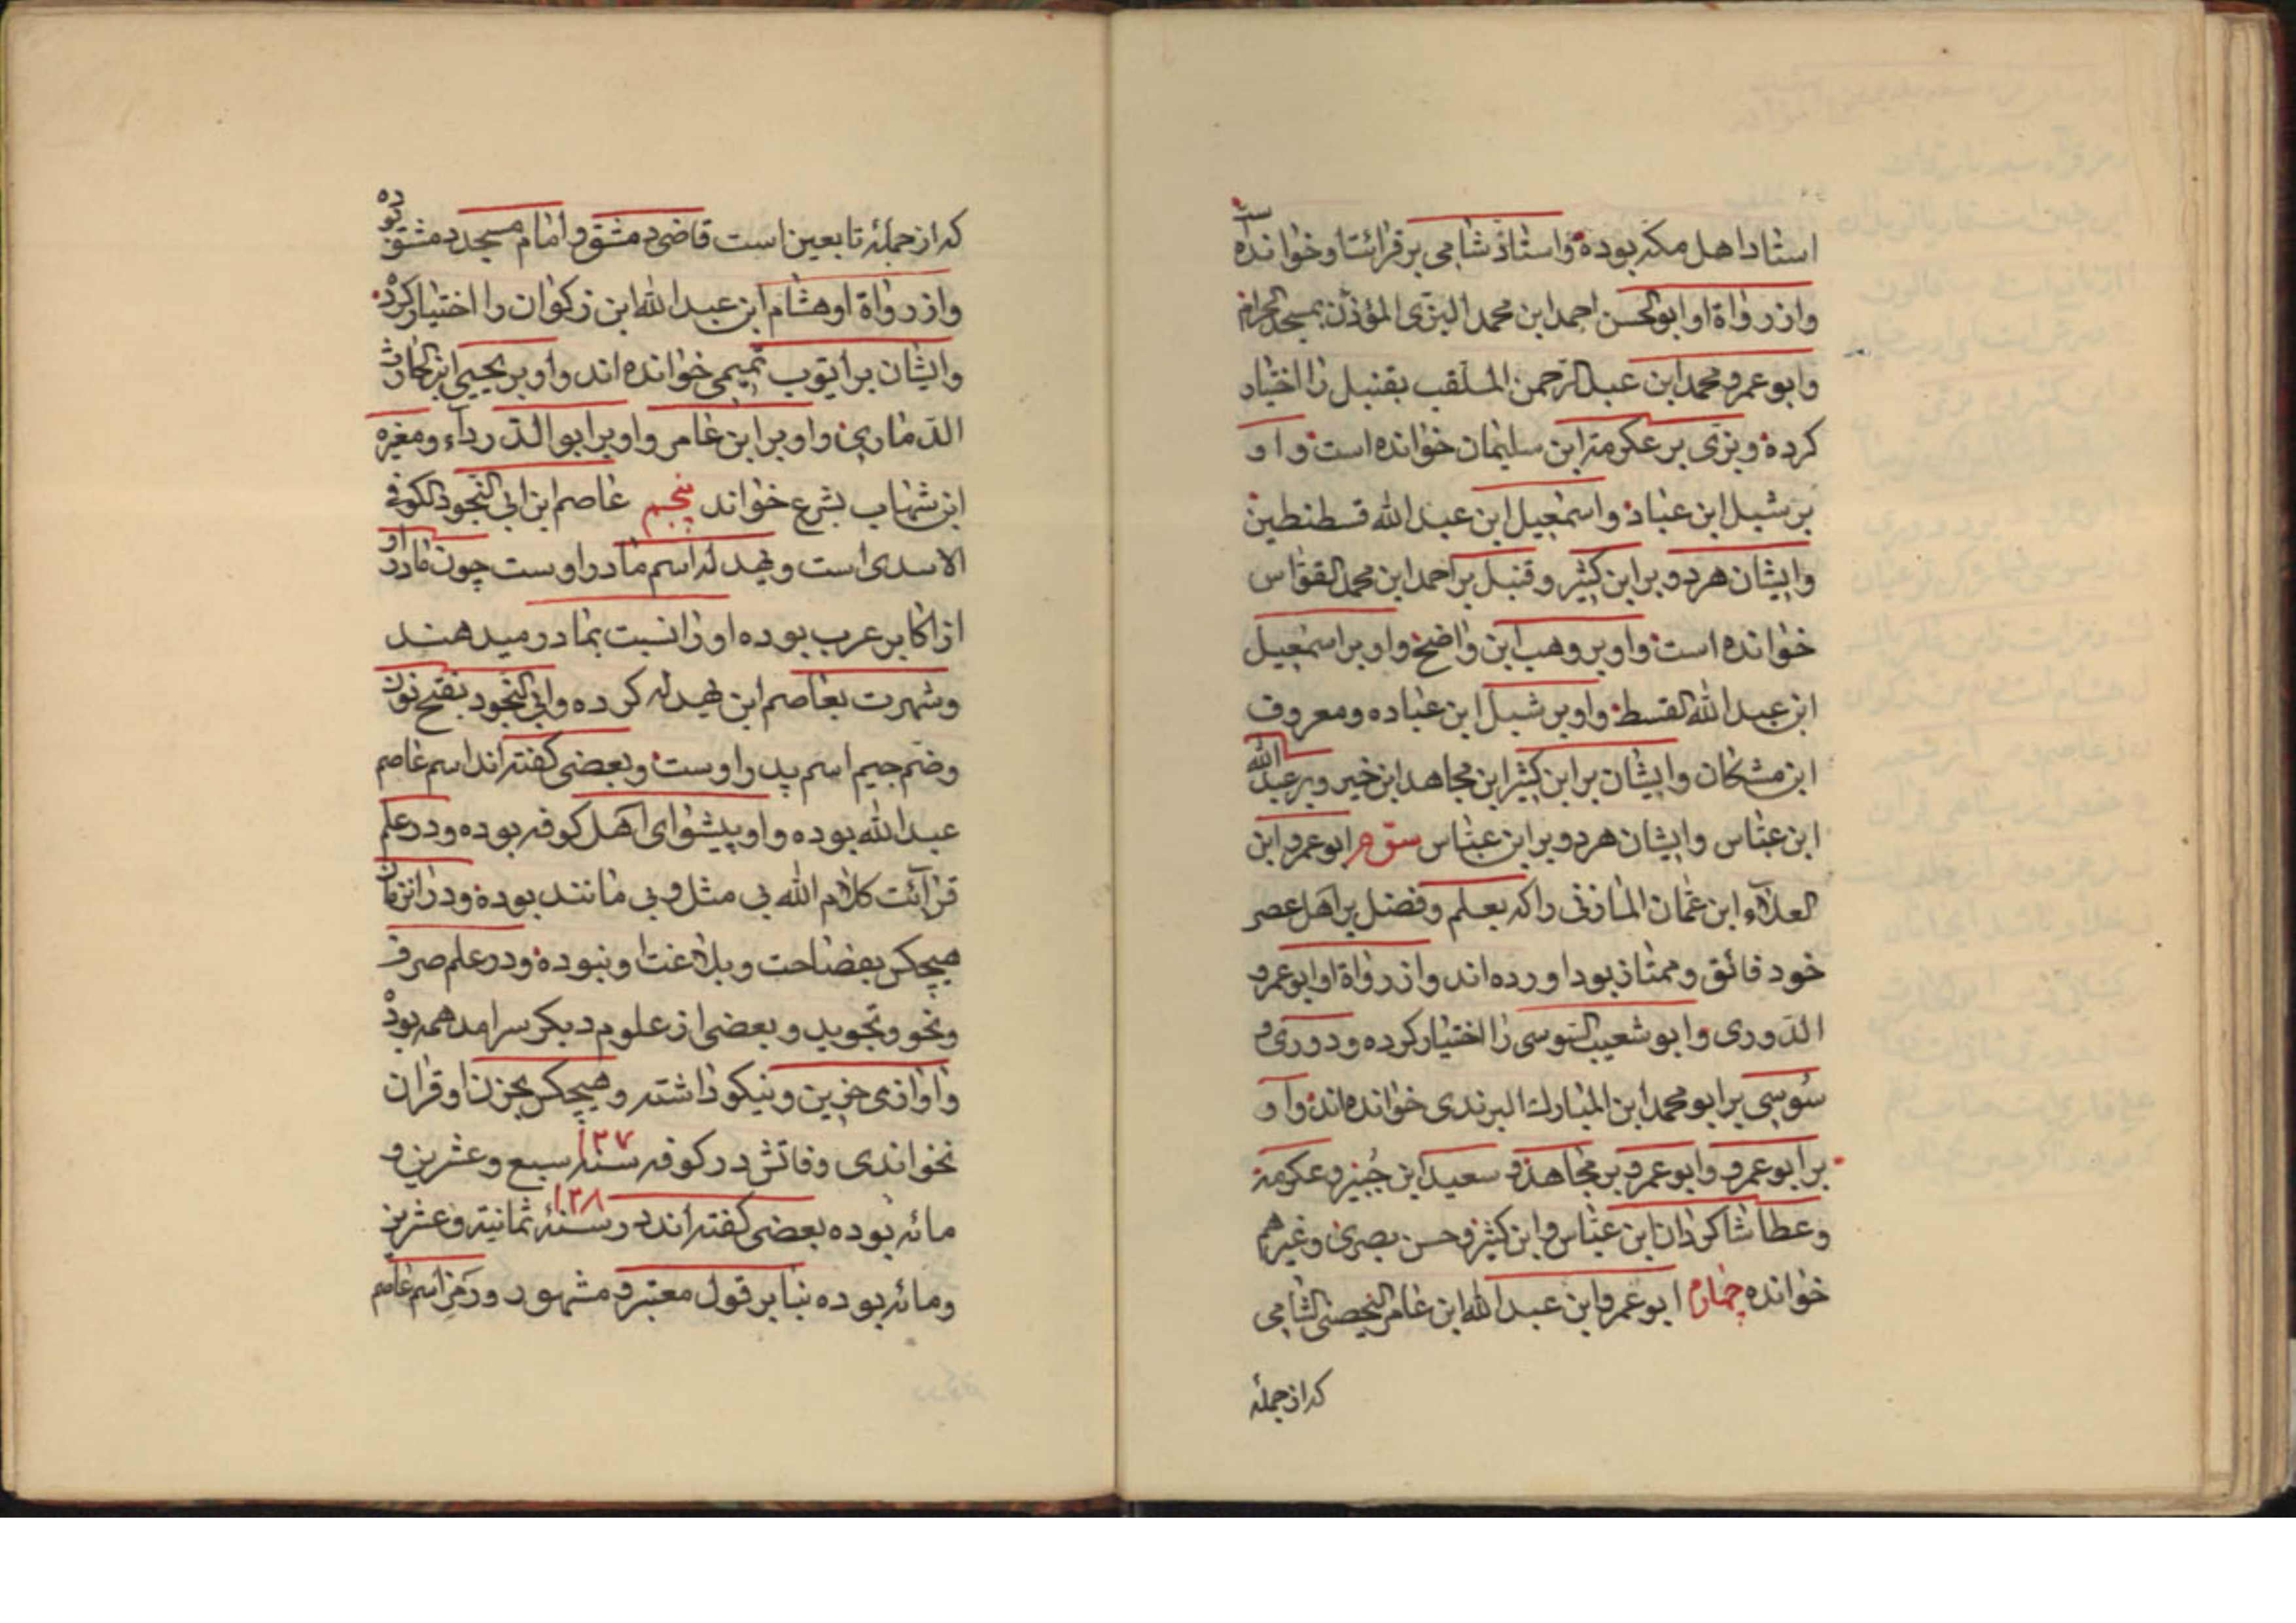 استاد اهل مکه بوده و استاد شامی بر قرائتا و خوانده است
و از رواة او ابو الحسن احمد ابن محمد البزی المؤذن بمسجد الحرام
و ابو عمرو محمد ابن عبد الرحمن الملقب بقنبل را اختیاه
کرده و بزی بر عکرمة ابن سلیمان خوانده است و او
بر شبل ابن عباد و اسمعیل ابن عبد الله قسطنطین
و ایشان هر دو بر ابن کثیر و قنبل بر احمد ابن محمد القواس
خوانده است و او بر وهب ابن واضح و او بر اسمعیل
ابن عبد الله القسط و او بر شبل ابن عباده و معروف
ابن مشکان و ایشان بر ابن کثیر ابن مجاهد ابن خیر و بر عبد الله
ابن عباس و ایشان هر دو بر ابن عباس سوم ابو عمرو ابن
العلاء ابن عثمان المازنی را که بعلم و فضل بر اهل عصر
خود فائق و ممتاز بود اورده اند و از رواة او ابو عمرو
الدوری و ابو شعیب السوسی را اختیار کرده و دوری و
سوسی بر ابو محمد ابن المبارک البرندی خوانده اند و او
بر ابو عمرو و ابو عمرو بر مجاهد و سعید ابن جبیر و عکرمة
و عطا شاکردان ابن عباس و ابن کثیر و حسن بصری و غیرهم
خوانده چهارم ابو عمرو ابن عبد الله ابن عامر الیحصنی الشامی
که از جملهٔ
که از جملهٔ تابعین است قاضی دمشق و امام مسجد دمشق بوده
و از رواة او هشام ابن عبد الله ابن زکوان را اختیار کرده
و ایشان بر ایوب تمیمی خوانده اند و او بر یحیی ابن الحارث
الذماری و او بر ابن عامر و او بر ابو الدرداء و مغیره
ابن شهاب بشرع خواند پنجم عاصم ابن ابی النجود الکوفی
الاسدی است و بهدله اسم مادر اوست چون مادر او
از اکابر عرب بوده او را نسبت بمادر میدهند
و شهرت بعاصم ابن بهدله کرده و ابی النجود بفتح نون
و ضم جیم اسم پدر اوست و بعضی کفته اند اسم عاصم
عبد الله بوده و او پیشوای اهل کوفه بوده و در علم
قرآئت کلام الله بی مثل و بی مانند بوده و در انزمان
هیچکس بفضاحت و بلاغت او نبوده و در علم صرف
و نحو و تجوید و بعضی از علوم دیکر سرامد همه بوده
و اوازی حزین و نیکو داشته و هیچکس بحزن او قران
نخواندی وفاتش در کوفه سنه ۱۲۷ سبع و عشرین و
مائه بوده بعضی کفته اند در سنهٔ ۱۲۸ ثمانیة و عشرین
و مائه بوده بنا بر قول معتبر و مشهور و رمز اسم عاصم